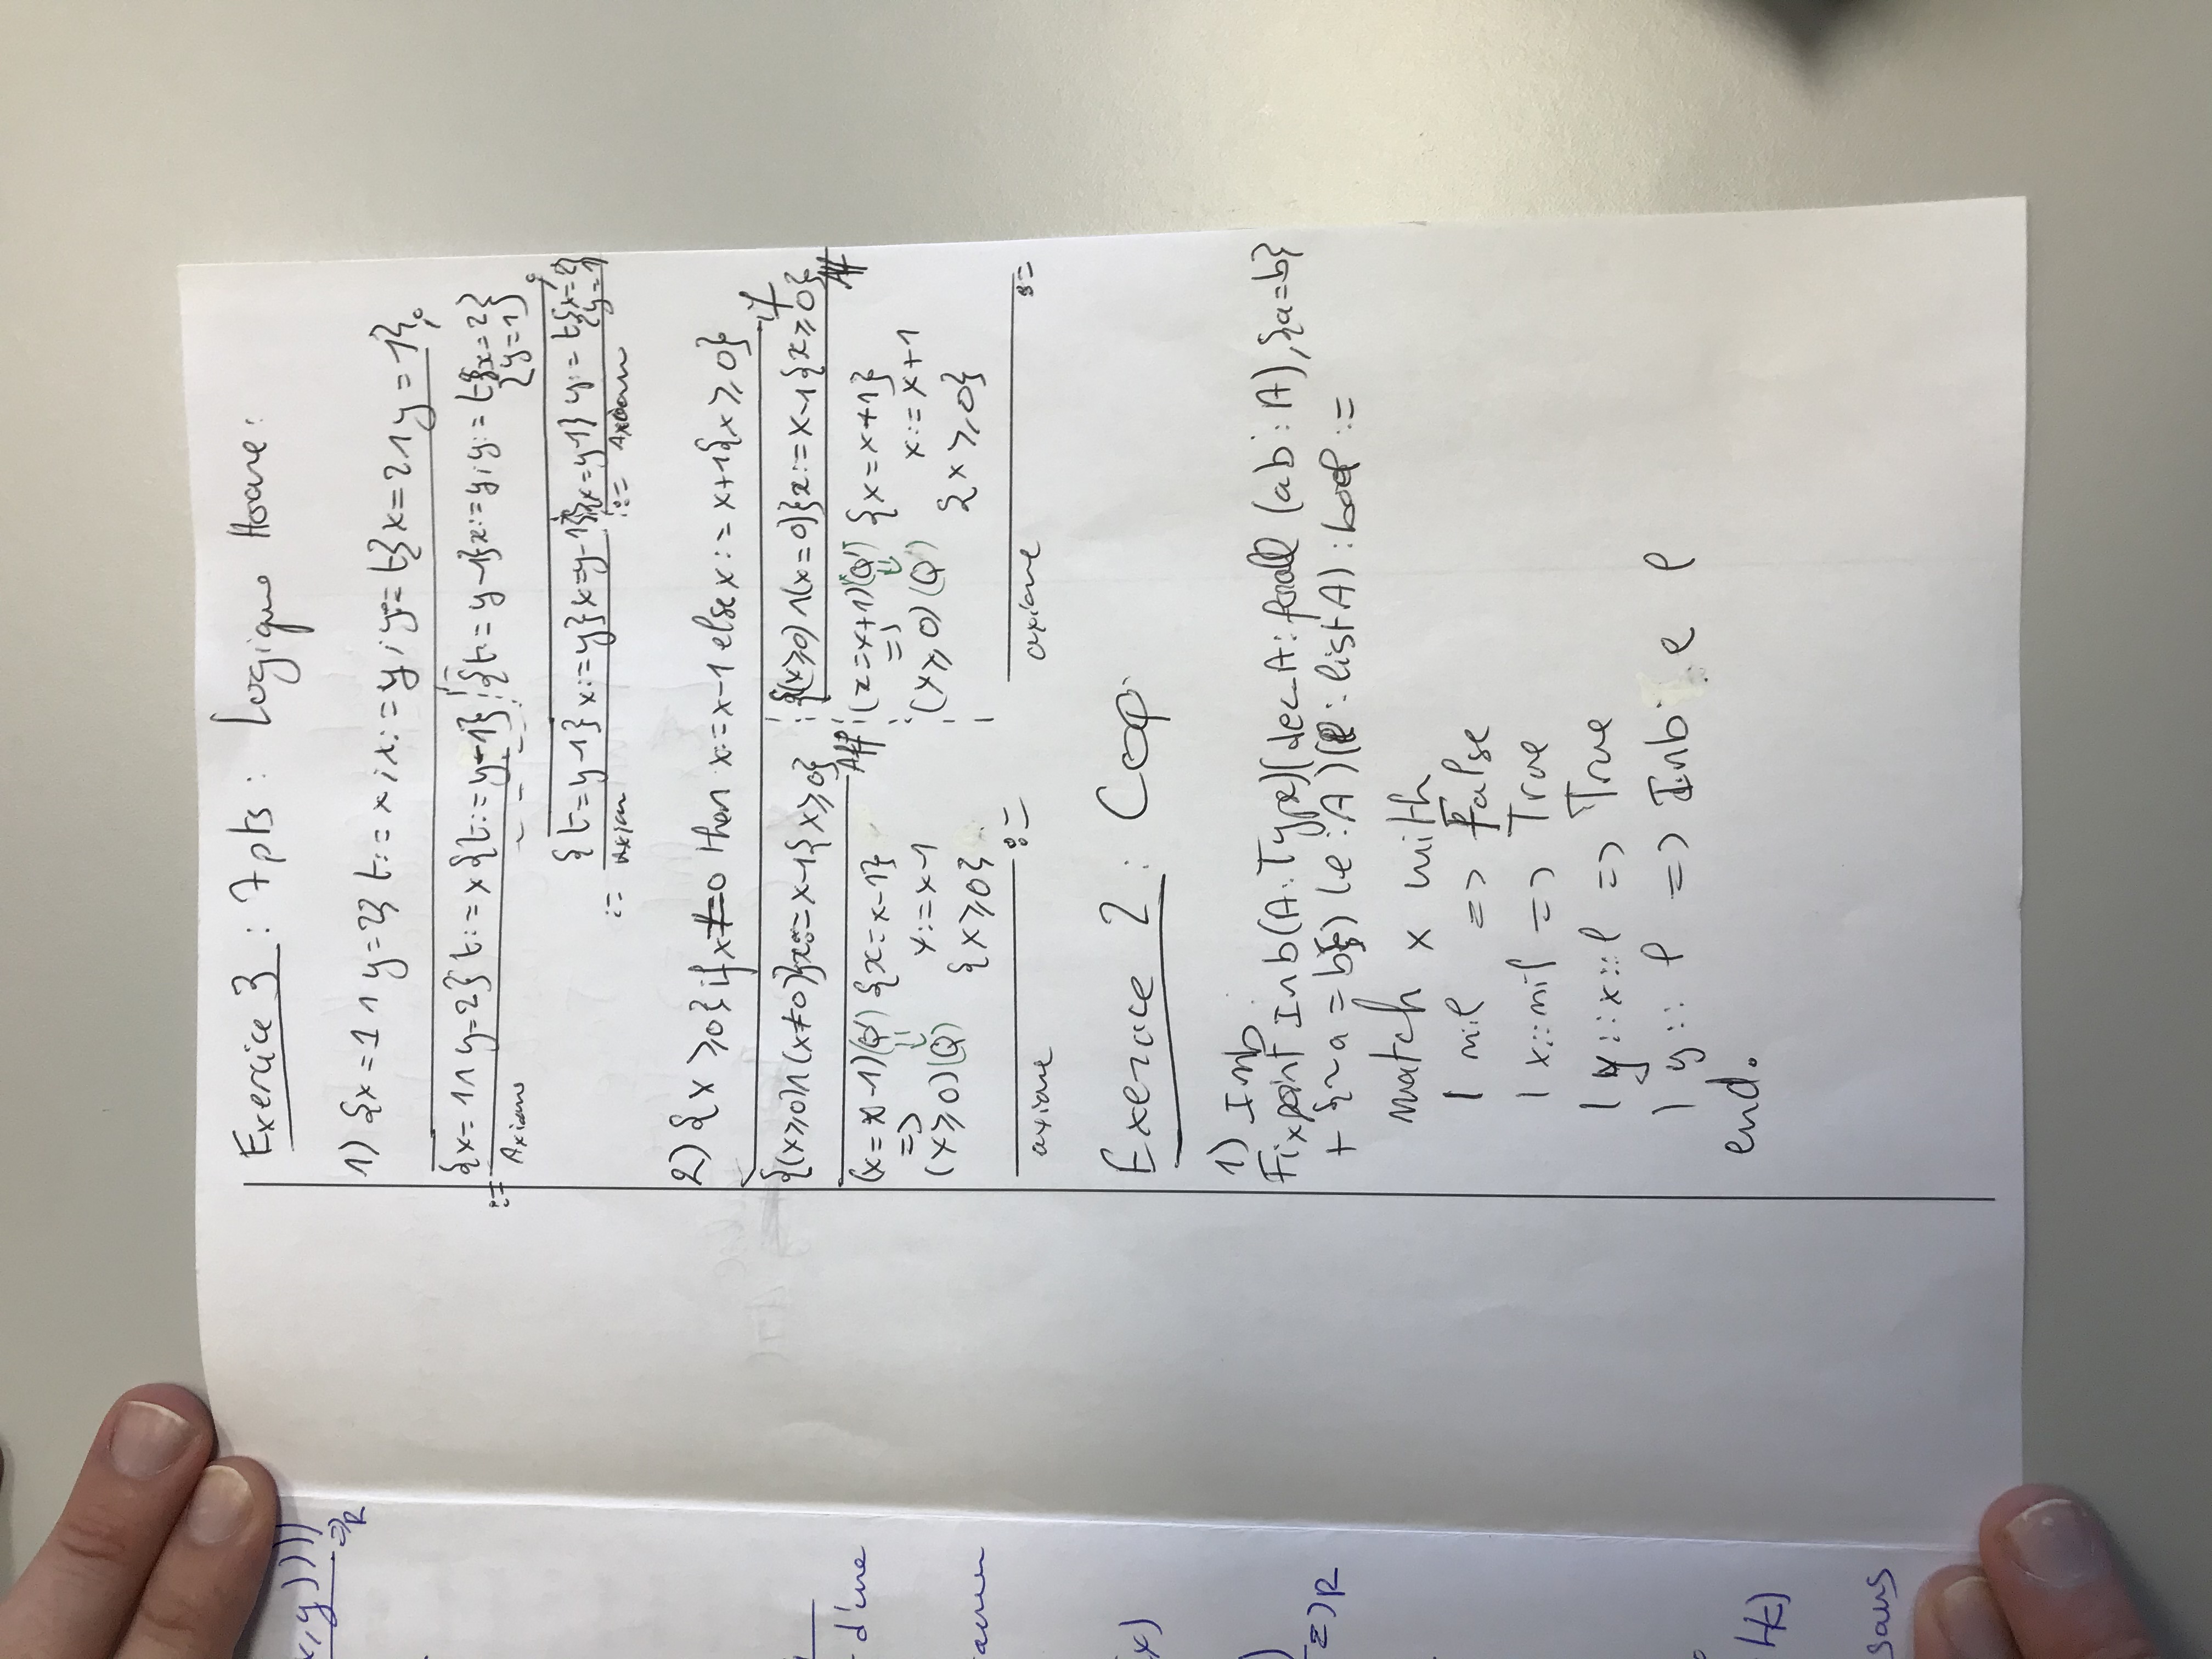 x,y))))
=>R
d'une
x)
=>R
sans
Exercice 3 : 7pts : Logique Hoare :
1) {x=1 ∧ y=2} t:=x ; x:=y ; y:=t {x=2 ∧ y=1} ;
{x=1 ∧ y=2} t:=x {t:=y-1} {t=y-1} x:=y ; y:=t {x=2}
{y=1}
:= Axiome ;
{t=y-1} x:=y} x=y-1} {x=y-1} y:=t {x=2}
{y=1}
:= Axiom := Axiom
2) {x ≥ 0} if x≠0 then x:=x-1 else x:=x+1 {x ≥ 0}
if
{(x≥0) ∧ (x≠0)} x:=x-1 {x≥0} {(x≥0) ∧ (x=0)} x:=x-1 {x≥0}
Aff Aff
(x=x-1)(Q') {x=x-1} (x=x+1)(Q') {x=x+1}
=> ⇓ x:=x-1 => ⇓ x:=x+1
(x≥0)(Q) {x≥0} (x≥0)(Q) {x≥0}
:= :=
axiome axiome
Exercice 2 : Coq
1) Inb
Fixpoint Inb(A:Type)(dec_A: forall (a b : A), {a=b}
+ {~a=b}) (e:A)(l:list A) : bool :=
match x with
| nil => False
| x::nil => True
| y::x::l => True
| y::l => Inb e l
end.